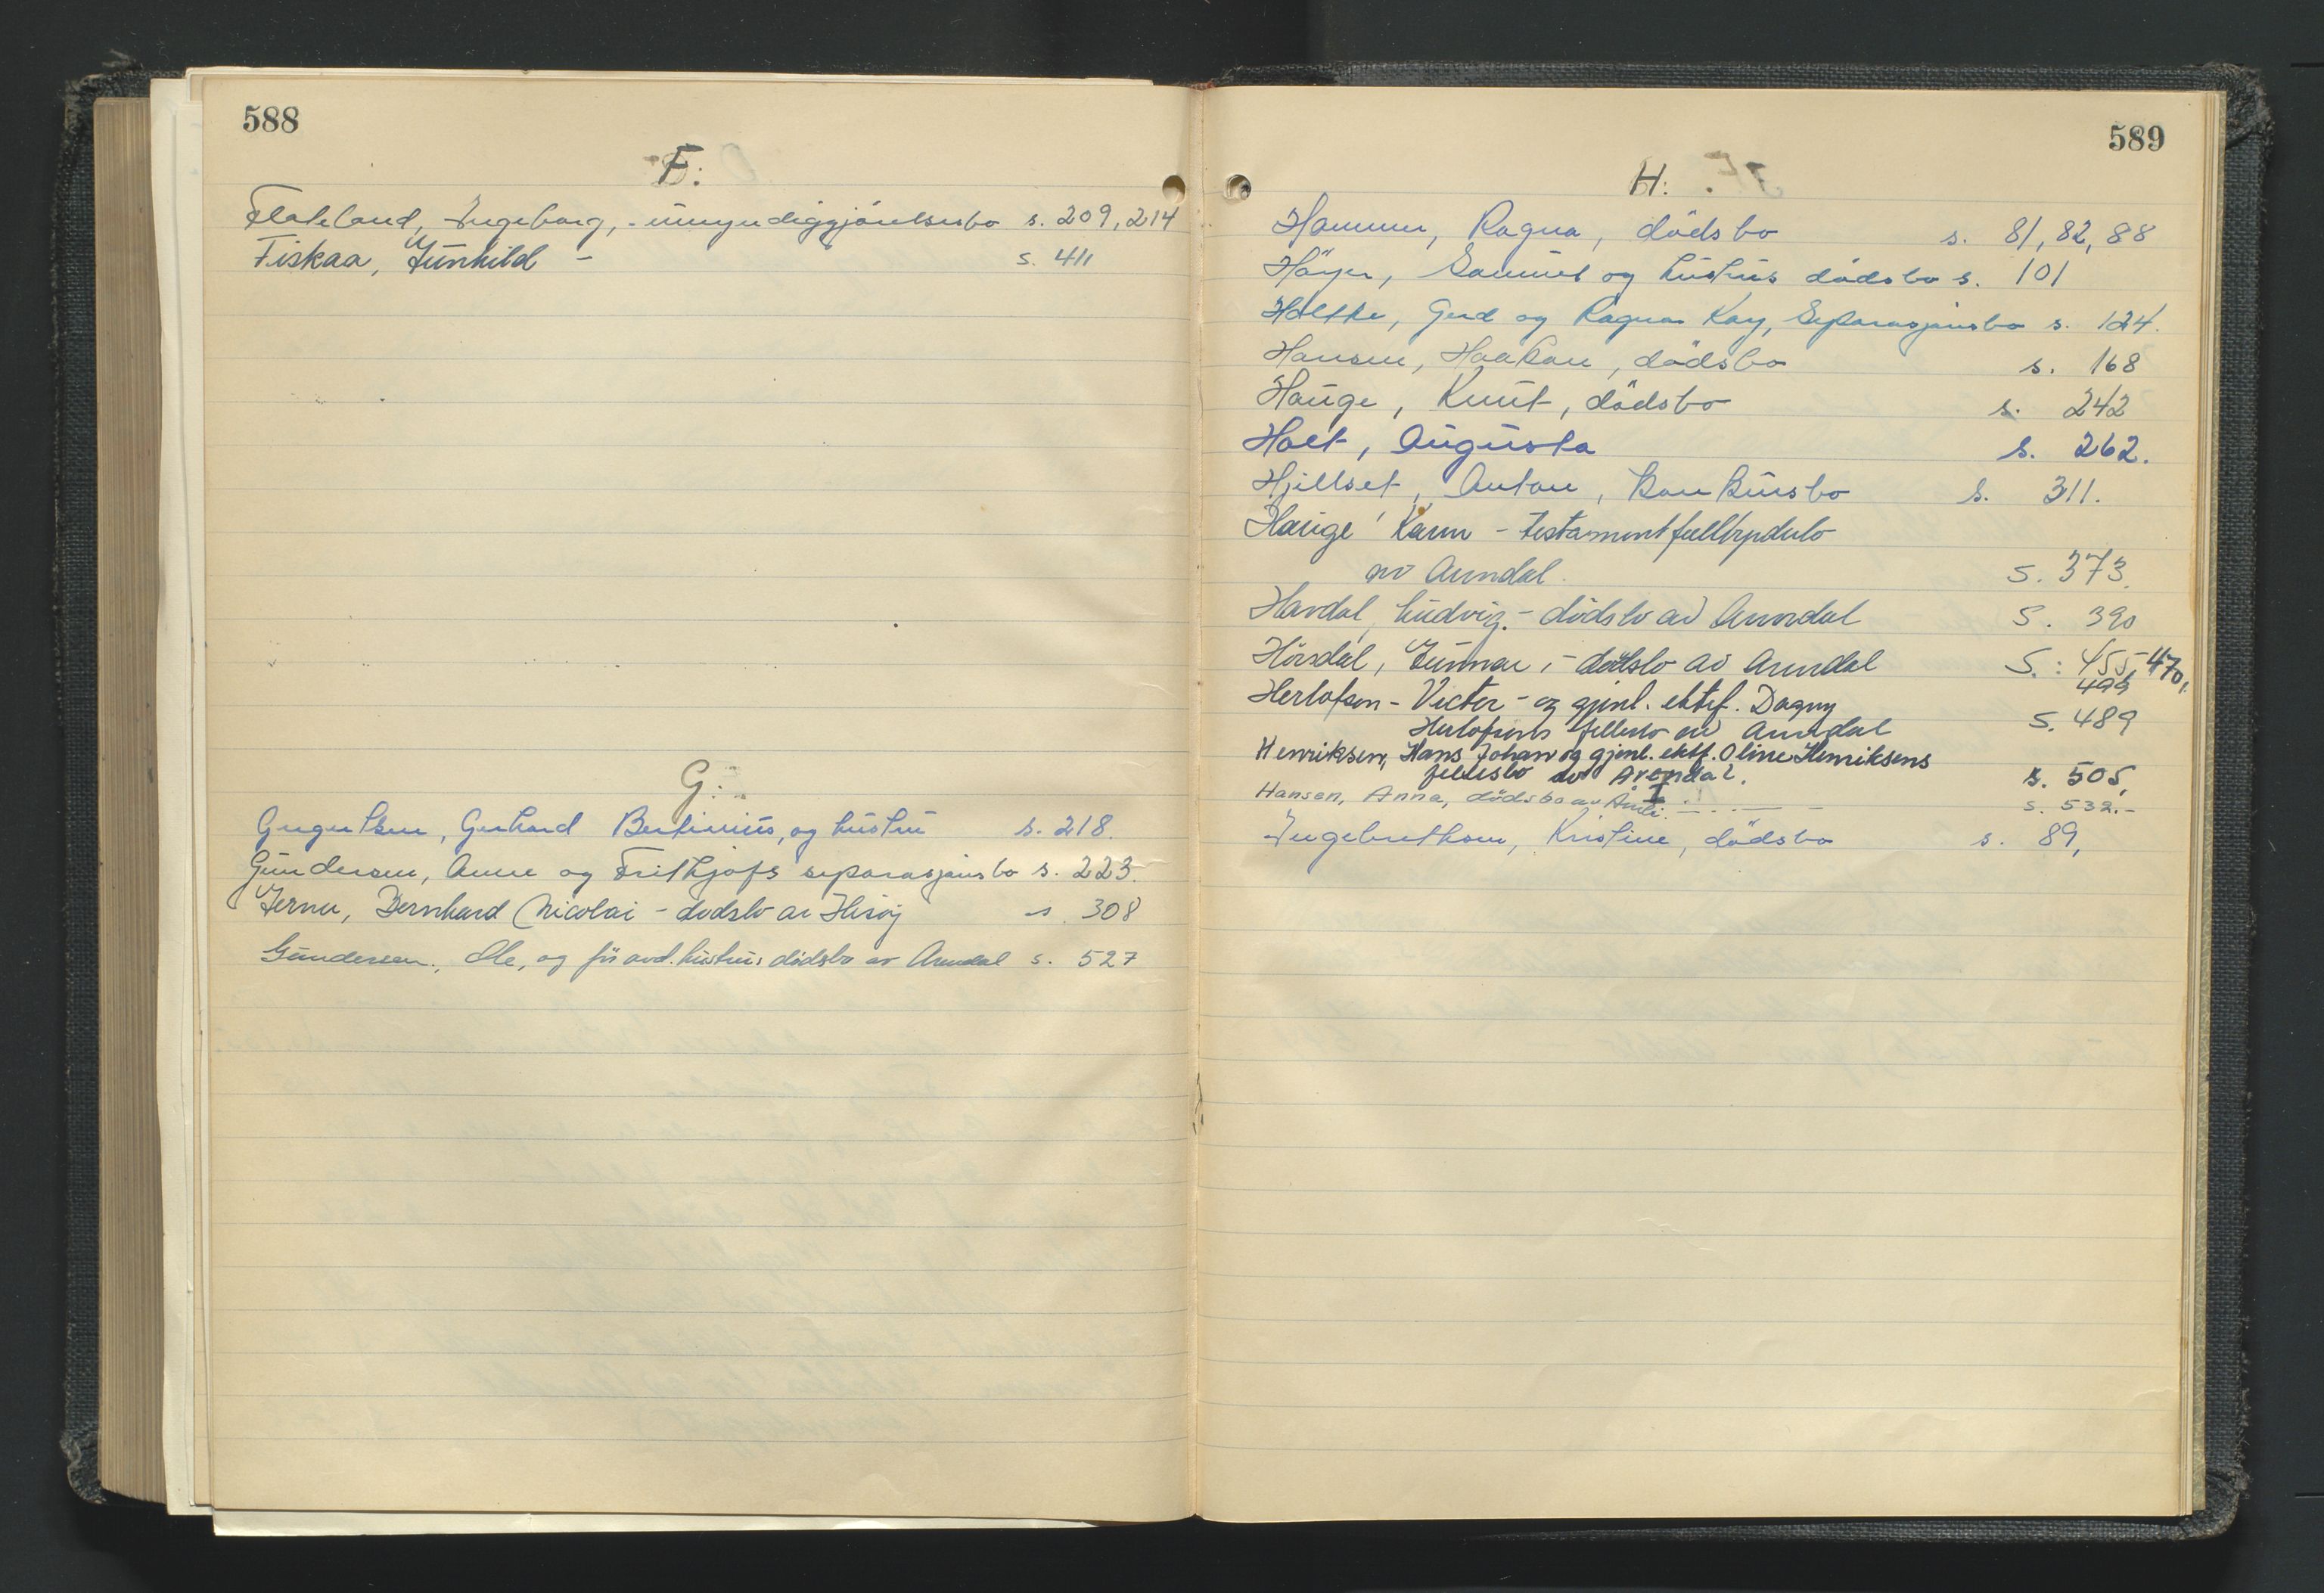 588
F:
Flateland, Ingeborg, - umyndiggjörelsesbo s. 209, 214
Fiskaa, Gunhild - s. 411
G:
Gregertsen, Gerhard Bertinius, og hustru s. 218.
Gundersen, Anne og Frithjofs separasjonsbo s. 223.
Jerner, Bernhard Nicolai - dødsbo av Hisøy s. 308
Gundersen, Ole, og før avd. hustrus dødsbo av Arendal s. 527
589
H:
Hammer, Ragna, dödsbo s. 81, 82, 88
Höyer, Samuel og hustrus dödsbo s. 101
Holtke, Gerd og Ragnar Kay, Separasjonsbo s. 124.
Hansen, Haakon, dödsbo s. 168
Hauge, Knut, dödsbo s. 242
Holt, Augusta s. 262.
Hjellset, Anton, Konkursbo s. 311.
Hauge, Karen - testamentfullbyrdelsbo
av Arendal. s. 373.
Havdal, Ludvig. - dödsbo av Arendal s. 390
Hövsdal, Gunnar, - dødsbo av Arendal S.: 455, 470,
499
Herlofsen - Victor - og gjenl. ektef. Dagny
Herlofsens fellesbo av Arendal s. 489
Henriksen, Hans Johan og gjenl. ektf. Oline Henriksens
fellesbo av Arendal. s. 505,
Hansen, Anna, dödsbo av Åmli. s. 532.-
I
Ingebrethsen, Kristine, dödsbo s. 89,